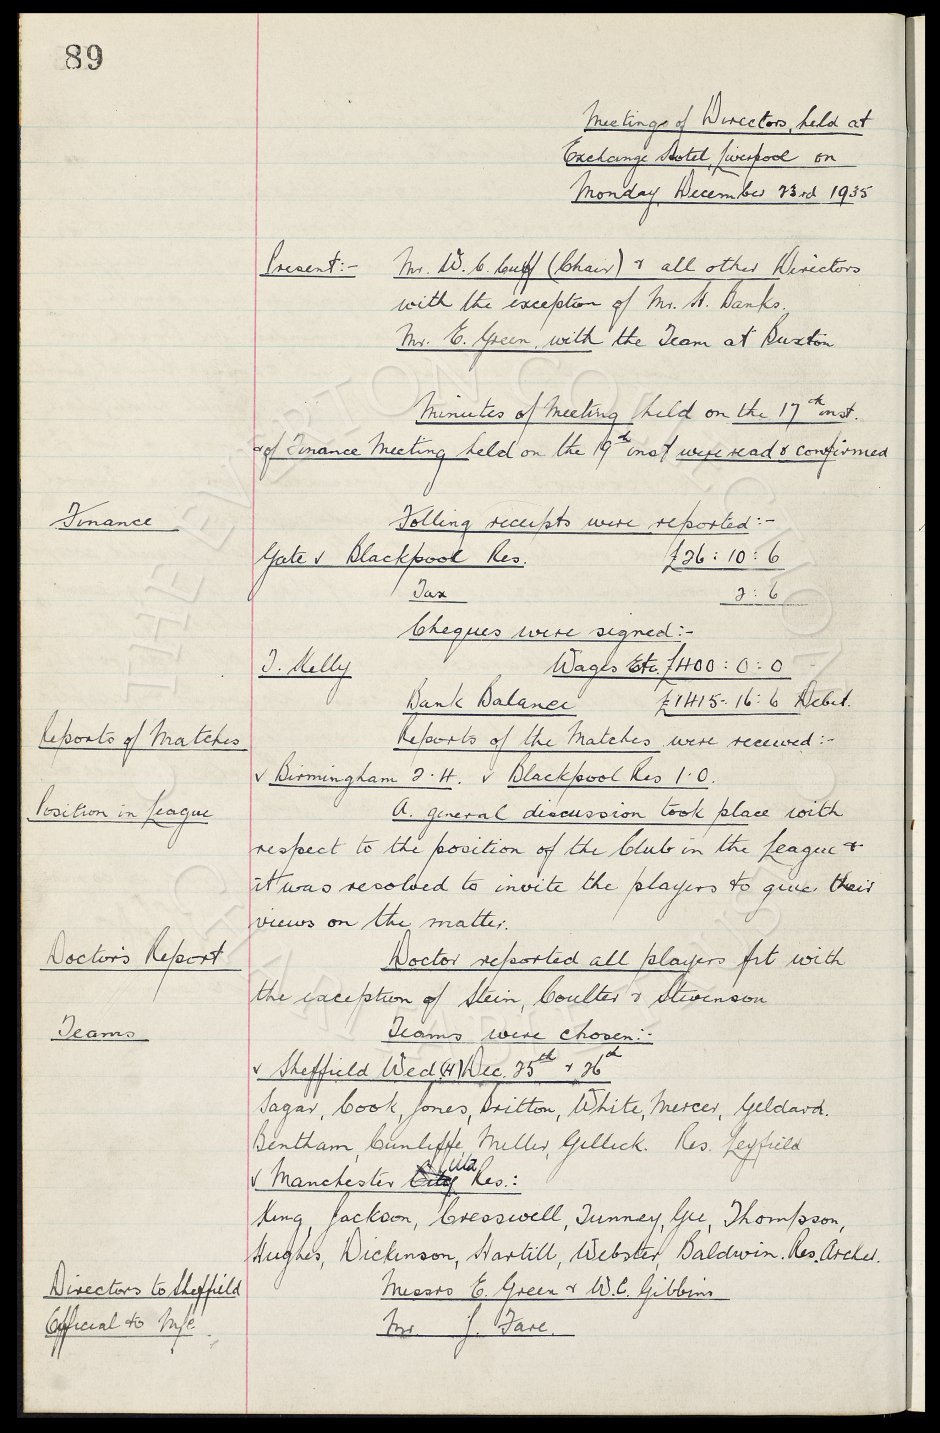 89
Meeting of Directors, held at
Exchange Hotel, Liverpool on
Monday December 23rd 1935
Present:- Mr. W. C. Cuff (Chair) & all other Directors
with the exception of Mr. H. Banks.
Mr. E. Green, with the Team at Buxton
Minutes of Meeting held on the 17th inst.
& of Finance Meeting held on the 19th inst were read & confirmed
Finance Folling receipts were reported:-
Gate v Blackpool Res. £26 : 10 : 6
Tax 2 : 6
Cheques were signed:-
T. Kelly Wages Etc. £400 : 0 : 0
Bank Balance £1415 : 16 : 6 Debit.
Reports of Matches Reports of the Matches were received:-
v Birmingham 2.4. v Blackpool Res 1.0.
Position in League A. general discussion took place with
respect to the position of the Club in the League &
it was resolved to invite the players to give their
views on the matter.
Doctor's Report Doctor reported all players fit with
the exception of Stein, Coulter & Stevenson
Teams Teams were chosen:-
v Sheffield Wed.(H) Dec. 25th & 26th
Sagar, Cook, Jones, Britton, White, Mercer, Geldard.
Bentham, Cunliffe, Miller, Gillick. Res. Leyfield
v Manchester City Utd Res.:
King, Jackson, Cresswell, Tunney, Gee, Thompson,
Hughes, Dickinson, Hartill, Webster, Baldwin. Res. Archer.
Directors to Sheffield Messrs E. Green & W.C. Gibbins
Official to M/c Mr. J. Fare.
THE EVERTON COLLECTION CHARITABLE TRUST